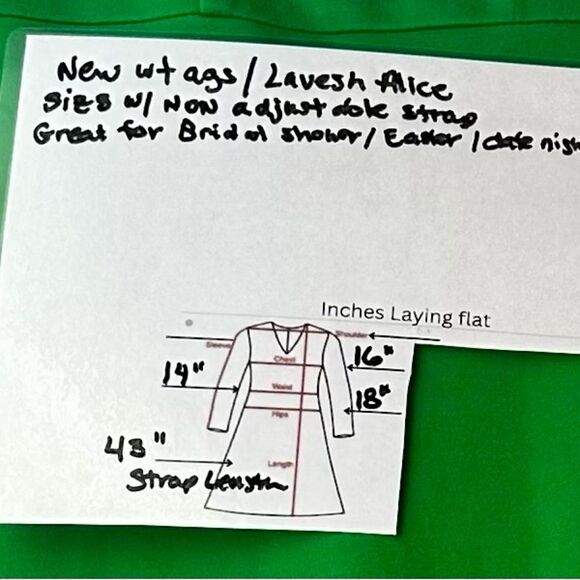 New wt ags / Lavesh Alice
Size S w/ NON adjustable strap
Great for Bridal shower / Easter / date nigh
Inches Laying flat
Sleeve
Shoulder
Chest
16"
14"
Waist
18"
Hips
43"
Length
Strap Length